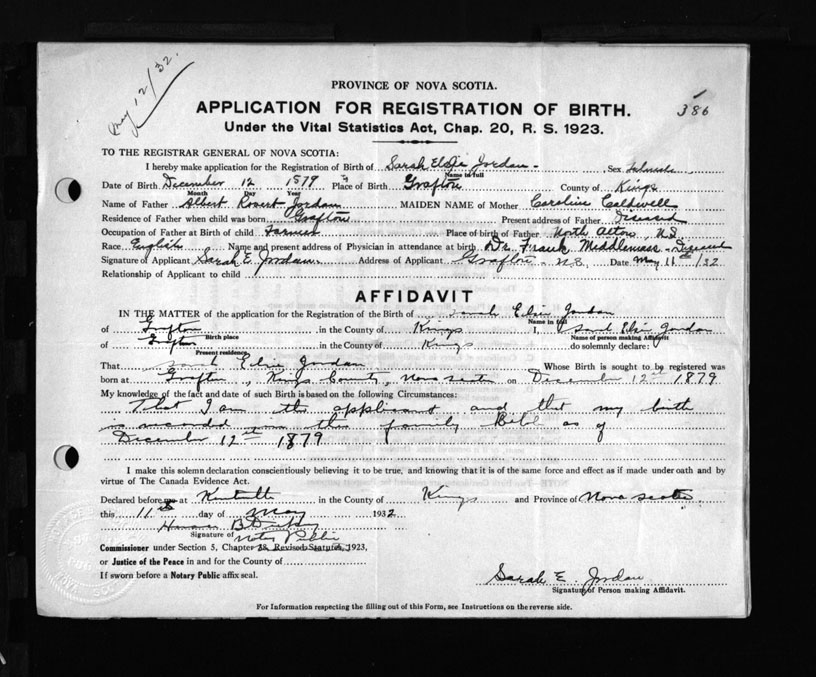 May 12/32.
PROVINCE OF NOVA SCOTIA.
386
APPLICATION FOR REGISTRATION OF BIRTH.
Under the Vital Statistics Act, Chap. 20, R. S. 1923.
TO THE REGISTRAR GENERAL OF NOVA SCOTIA:
I hereby make application for the Registration of Birth of Sarah Elsie Jordan Sex
Name in full
Date of Birth December 12 1879 Place of Birth Grafton County of Kings
Month Day Year
Name of Father Albert Robert Jordan MAIDEN NAME of Mother Caroline Caldwell
Residence of Father when child was born Grafton Present address of Father Diseased
Occupation of Father at Birth of child Farmer Place of birth of Father North Alton, N.S
Race English Name and present address of Physician in attendance at birth Dr. Frank Middlemas - Diseased
Signature of Applicant Sarah E. Jordan Address of Applicant Grafton N.S. Date May 11th /32
Relationship of Applicant to child
AFFIDAVIT
IN THE MATTER of the application for the Registration of the Birth of Sarah Elsie Jordan
Name in full
of Grafton in the County of Kings I, Sarah Elsie Jordan
Birth place Name of person making Affidavit
of Grafton in the County of Kings do solemnly declare:
Present residence
That Sarah Elsie Jordan Whose Birth is sought to be registered was
born at Grafton, Kings County, Nova Scotia on December 12th 1879
My knowledge of the fact and date of such Birth is based on the following Circumstances:
That I am the applicant and that my birth
is recorded in the family Bible as of
December 12th 1879
I make this solemn declaration conscientiously believing it to be true, and knowing that it is of the same force and effect as if made under oath and by
virtue of The Canada Evidence Act.
Declared before me at Kentville in the County of Kings and Province of Nova Scotia
this 11th day of May 1932
Signature of Notary Public
Commissioner under Section 5, Chapter 38, Revised Statutes, 1923,
or Justice of the Peace in and for the County of
If sworn before a Notary Public affix seal.
Sarah E. Jordan
Signature of Person making Affidavit.
For Information respecting the filling out of this Form, see Instructions on the reverse side.